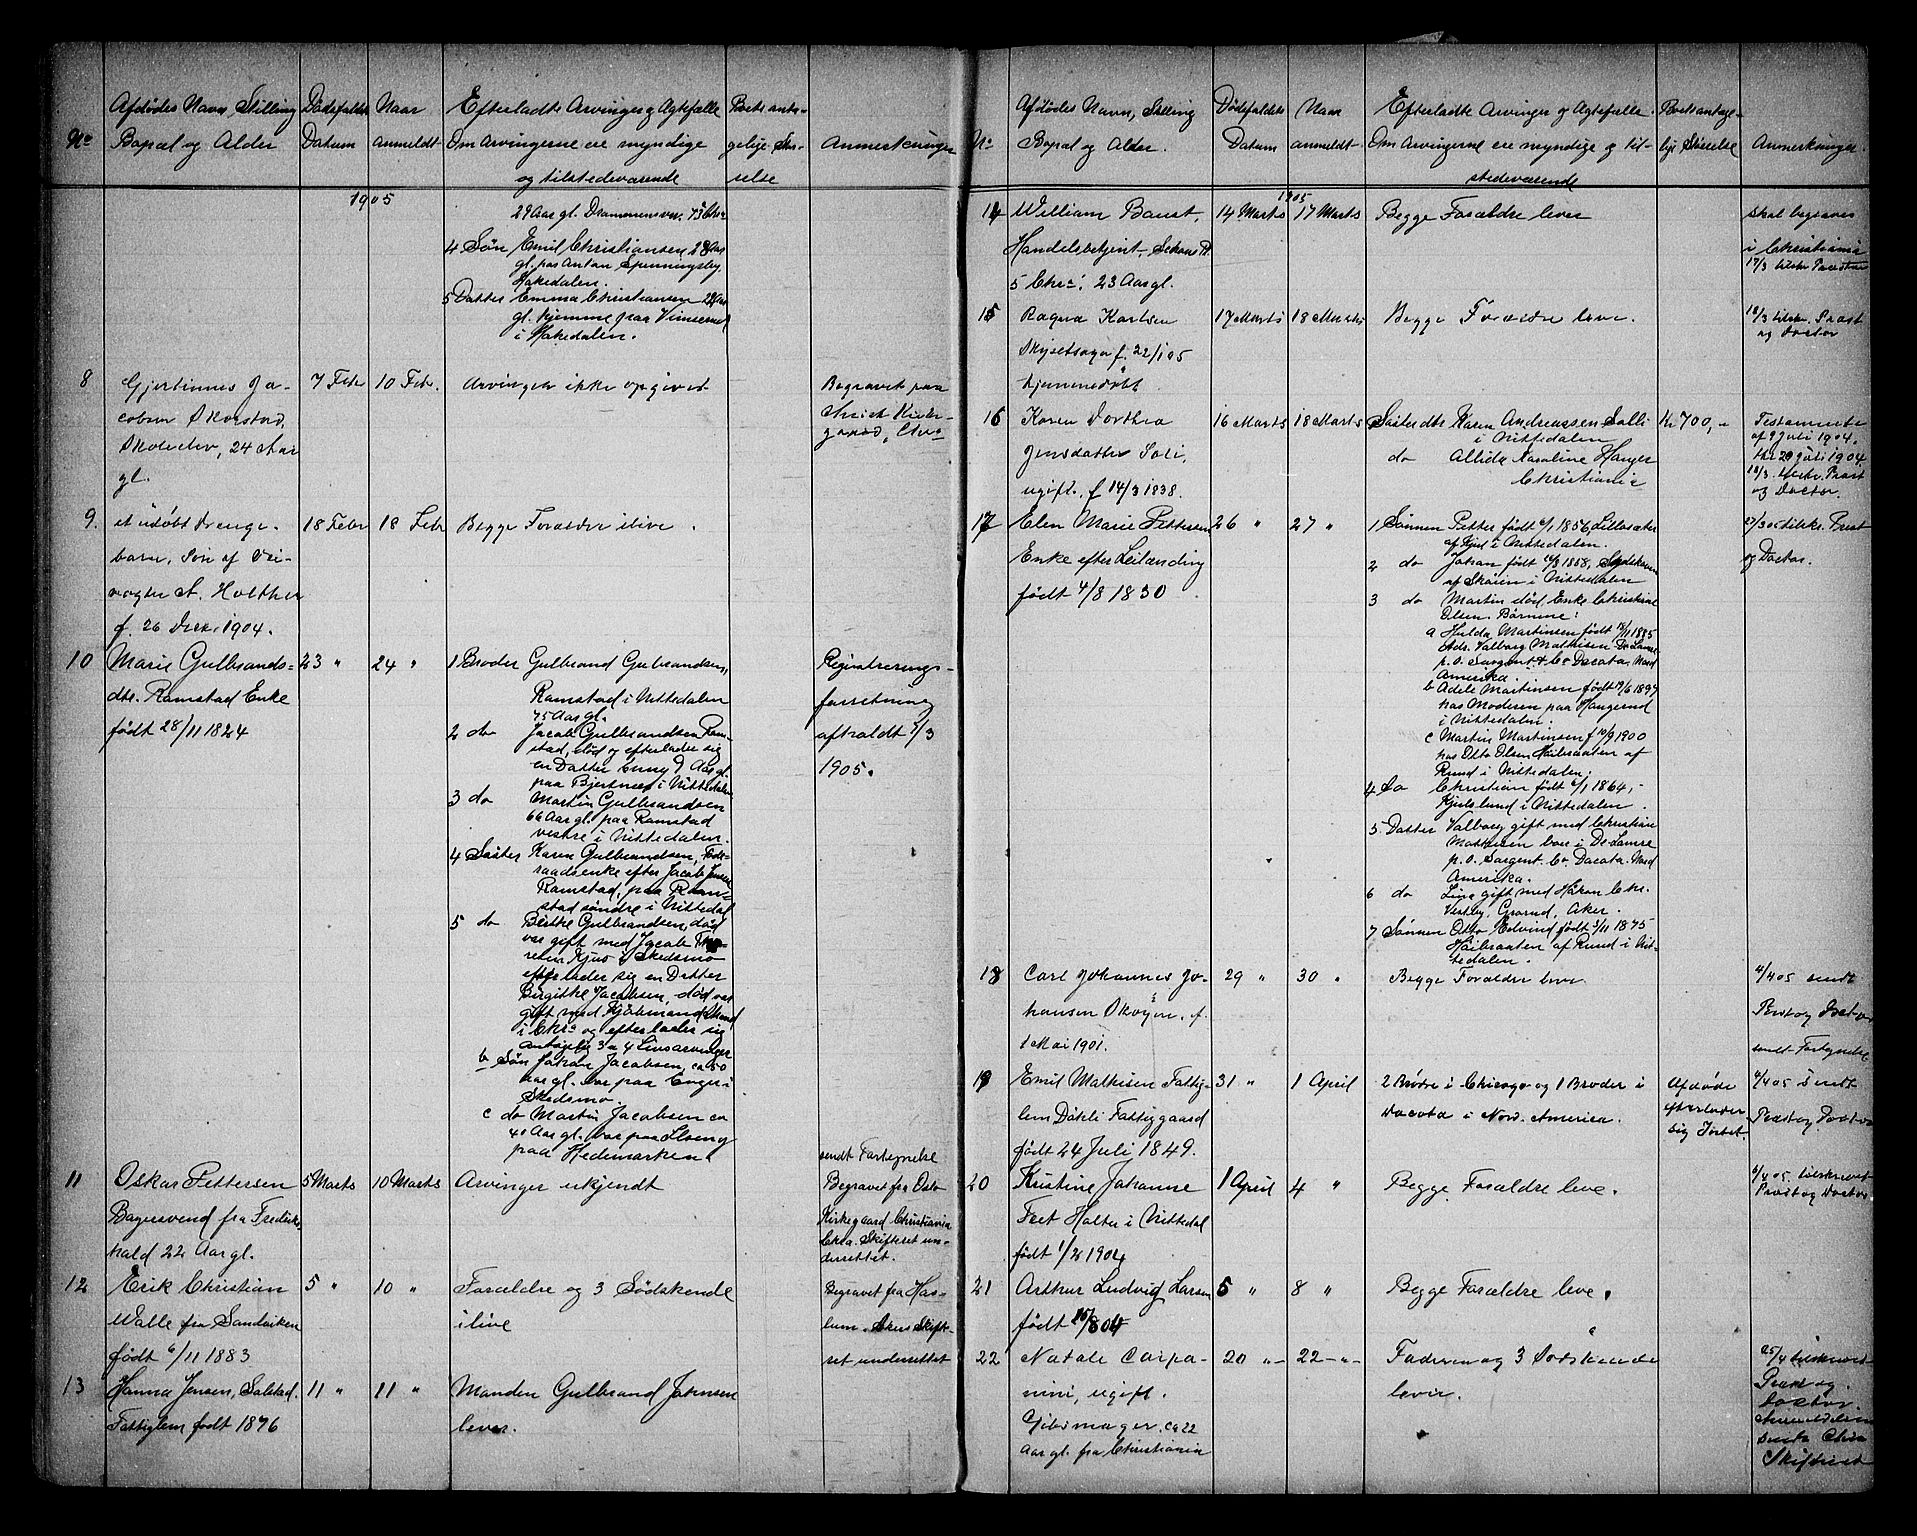 No
Afdødes Navn, Stilling
Bopæl og Alder
Dødsfaldets
Datum
Naar
anmeldt
Efterladte Arvinger og Ægtefælle
Om Arvingerne ere myndige
og tilstedeværende
Boets anta-
gelige Stør-
relse
Anmerkninger
1905
29 Aar gl. Drammensvn. 73 Chra
4 Søn Emil Christiansen 28 Aar
gl. paa Anton Spenningsby
Hakedalen.
5 Datter Emma Christiansen 22 Aar
gl. hjemme paa
i Hakedalen.
8
Gjertinnes Ja-
cobsen Skorstad,
Skoleelev, 24 Aar
gl.
7 Febr
10 Febr.
Arvinger ikke opgivet
Begravet paa
Christ Kirke-
gaard, Chra
9.
et udøbt Drenge-
barn, Søn af Vei-
vogter A. Holther
f. 26 Decr. 1904.
18 Febr
18 Febr
Begge Forældre ilive.
10
Marie Gulbrands-
dtr. Ramstad Enke
født 28/11 1824
23 "
24 "
1 Broder Gulbrand Gulbrandsen,
Ramstad i Nittedalen
75 Aar gl.
2 do Jacob Gulbrandsen Ram-
stad, død og efterlader sig
en Datter 9 Aar gl.
paa Bjertnes i Nittedalen
3 do Martin Gulbrandsen
66 Aar gl. paa Ramstad
vestre i Nittedalen.
4 Søster Karen Gulbrandsen, Føde-
raadsenke efter Jacob Jensen
Ramstad, paa Ram-
stad søndre i Nittedal
5 do Birthe Gulbrandsen, død
var gift med Jacob
Kjus i Skedsmo
efterlader sig en Datter
Birgithe Jacobsen, død var
gift med Kjøbmand
i Chra og efterlader sig
antagelig 3 a 4 Livsarvinger
b Søn Johan Jacobsen, ca 50
Aar gl. bor paa Enger i
Skedsmo.
c do Martin Jacobsen ca
40 Aar gl. bor paa
paa Hedemarken.
Registrerings-
forretning
afholdt 7/3
1905.
sendt Fortegnelse
11
Oskar Pettersen
Bagersvend fra Fredriks-
hald 22 Aar gl.
5 Marts
10 Marts
Arvinger ukjendt
Begravet fra Oslo
Kirkegaard Christiania
Chra. Skifteret un-
derrettet.
12
Erik Christian
Walle fra Sandviken
født 6/11 1883
5 "
10 "
Forældre og 3 Sødskende
ilive
Begravet fra Has-
lum. Akers Skifte-
ret underrettet
13
Hanna Jensen, Sølstad.
Fattiglem født 1876
11 "
11 "
Manden Gulbrand Johnsen
lever.
No
Afdødes Navn, Stilling
Bopæl og Alder.
Dødsfaldets
Datum
Naar
anmeldt
Efterladte Arvinger og Ægtefælle.
Om Arvingerne ere myndige og til-
stedeværende
Boets antage-
lige Størrelse
Anmerkninger.
1905
14
William Baust,
Handelsbetjent, Schous Pl.
5 Chra: 23 Aar gl.
14 Marts
17 Marts
Begge Forældre lever
skal begraves
i Christiania
17/3 tilskr Præsten
15
Ragna Karlsen
f. 22/1 05
hjemmedøbt
17 Marts
18 Marts
Begge Forældre leve.
18/3 tilskr. Præst
og Doctor
16
Karen Dorthea
Jensdatter Søli,
ugift. f 14/3 1838.
16 Marts
18 Marts
Søsterdtr Karen Andreassen Sølli
i Nittedalen
do Allida Karoline Hanger
Christiania
Kr 700,-
Testamente
af 9 Juli 1904.
tkr 20 Juli 1904
18/3. tilskr. Præst
og Doctor.
17
Elen Marie Pettersen
Enke efter Leilænding
født 4/8 1830
26 "
27 "
1 Sønnen Petter født 6/1 1856, Lillesæter
af Kjul i Nittedalen.
2 do Johan født 14/8 1858,
af Skøien i Nittedalen
3 do Martin død Enke Christine
Olsen. Børnene:
a Hulda Martinsen født 15/11 1895
Adr. Valborg Mathisen De Lamre
p. o. Sargent Co Dacota, Nord
Amerika.
b Adele Martinsen født 19/6 1897
hos Moderen paa Haugerud
i Nittedalen.
c Martin Martinsen f 10/9 1900
hos Otto Olsen Heilbraaten af
Rund i Nittedalen.
4 Do Christian født 6/1 1864,-
Kjulslund i Nittedalen.
5 Datter Valborg gift med Christian
Mathisen bor i De Lamre
p. o. Sargent Co Dacota. Nord
Amerika.
6 do Line gift med Håkon Chr.
Vestby, Grorud, Aker.
7 Sønnen Otto Edvind født 5/11 1875
Heilbraaten af Rund i Nit-
tedalen.
27/3 05 tilskr. Præst
og Doctor.
18
Carl Johannes Jo-
hansen Skøyen, f.
1 Mai 1901.
29 "
30 "
Begge Forældre lever
4/4 05 sendt
Præst og Doctor
sendt Fortegnelse
19
Emil Mathisen Fattig-
lem Døhli Fattiggaard
født 24 Juli 1849.
31 "
1 April
2 Brødre i Chicago og 1 Broder i
Dacota i Nord. America.
Afdøde
efterlader
sig Intet.
4/4 05 sendt
Præst og Doctor
20
Kristine Johanne
Feet Holter i Nittedal
født 1/2 1904
1 April
4 "
Begge Forældre leve.
6/4 05 tilskrevet
Præst og Doctor
21
Arthur Ludvig Larsen
født 15/8 04
5 "
8 "
Begge Forældre leve.
22
Natale Carpa-
nini, ugift.
Gibsmager. ca 22
Aar gl. fra Christiania
20 "-
22-"-
Faderen og 3 Sødskende
lever.
25/4 tilskrevet
Præst og
Doctor.
Anmeldelsen
sendt Chra
Skifteret